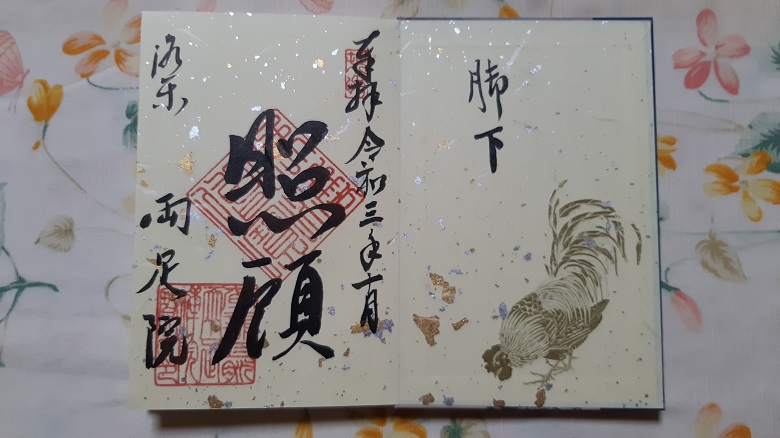 脚下
奉拝 令和三年十一月
照顧
洛東
両足院